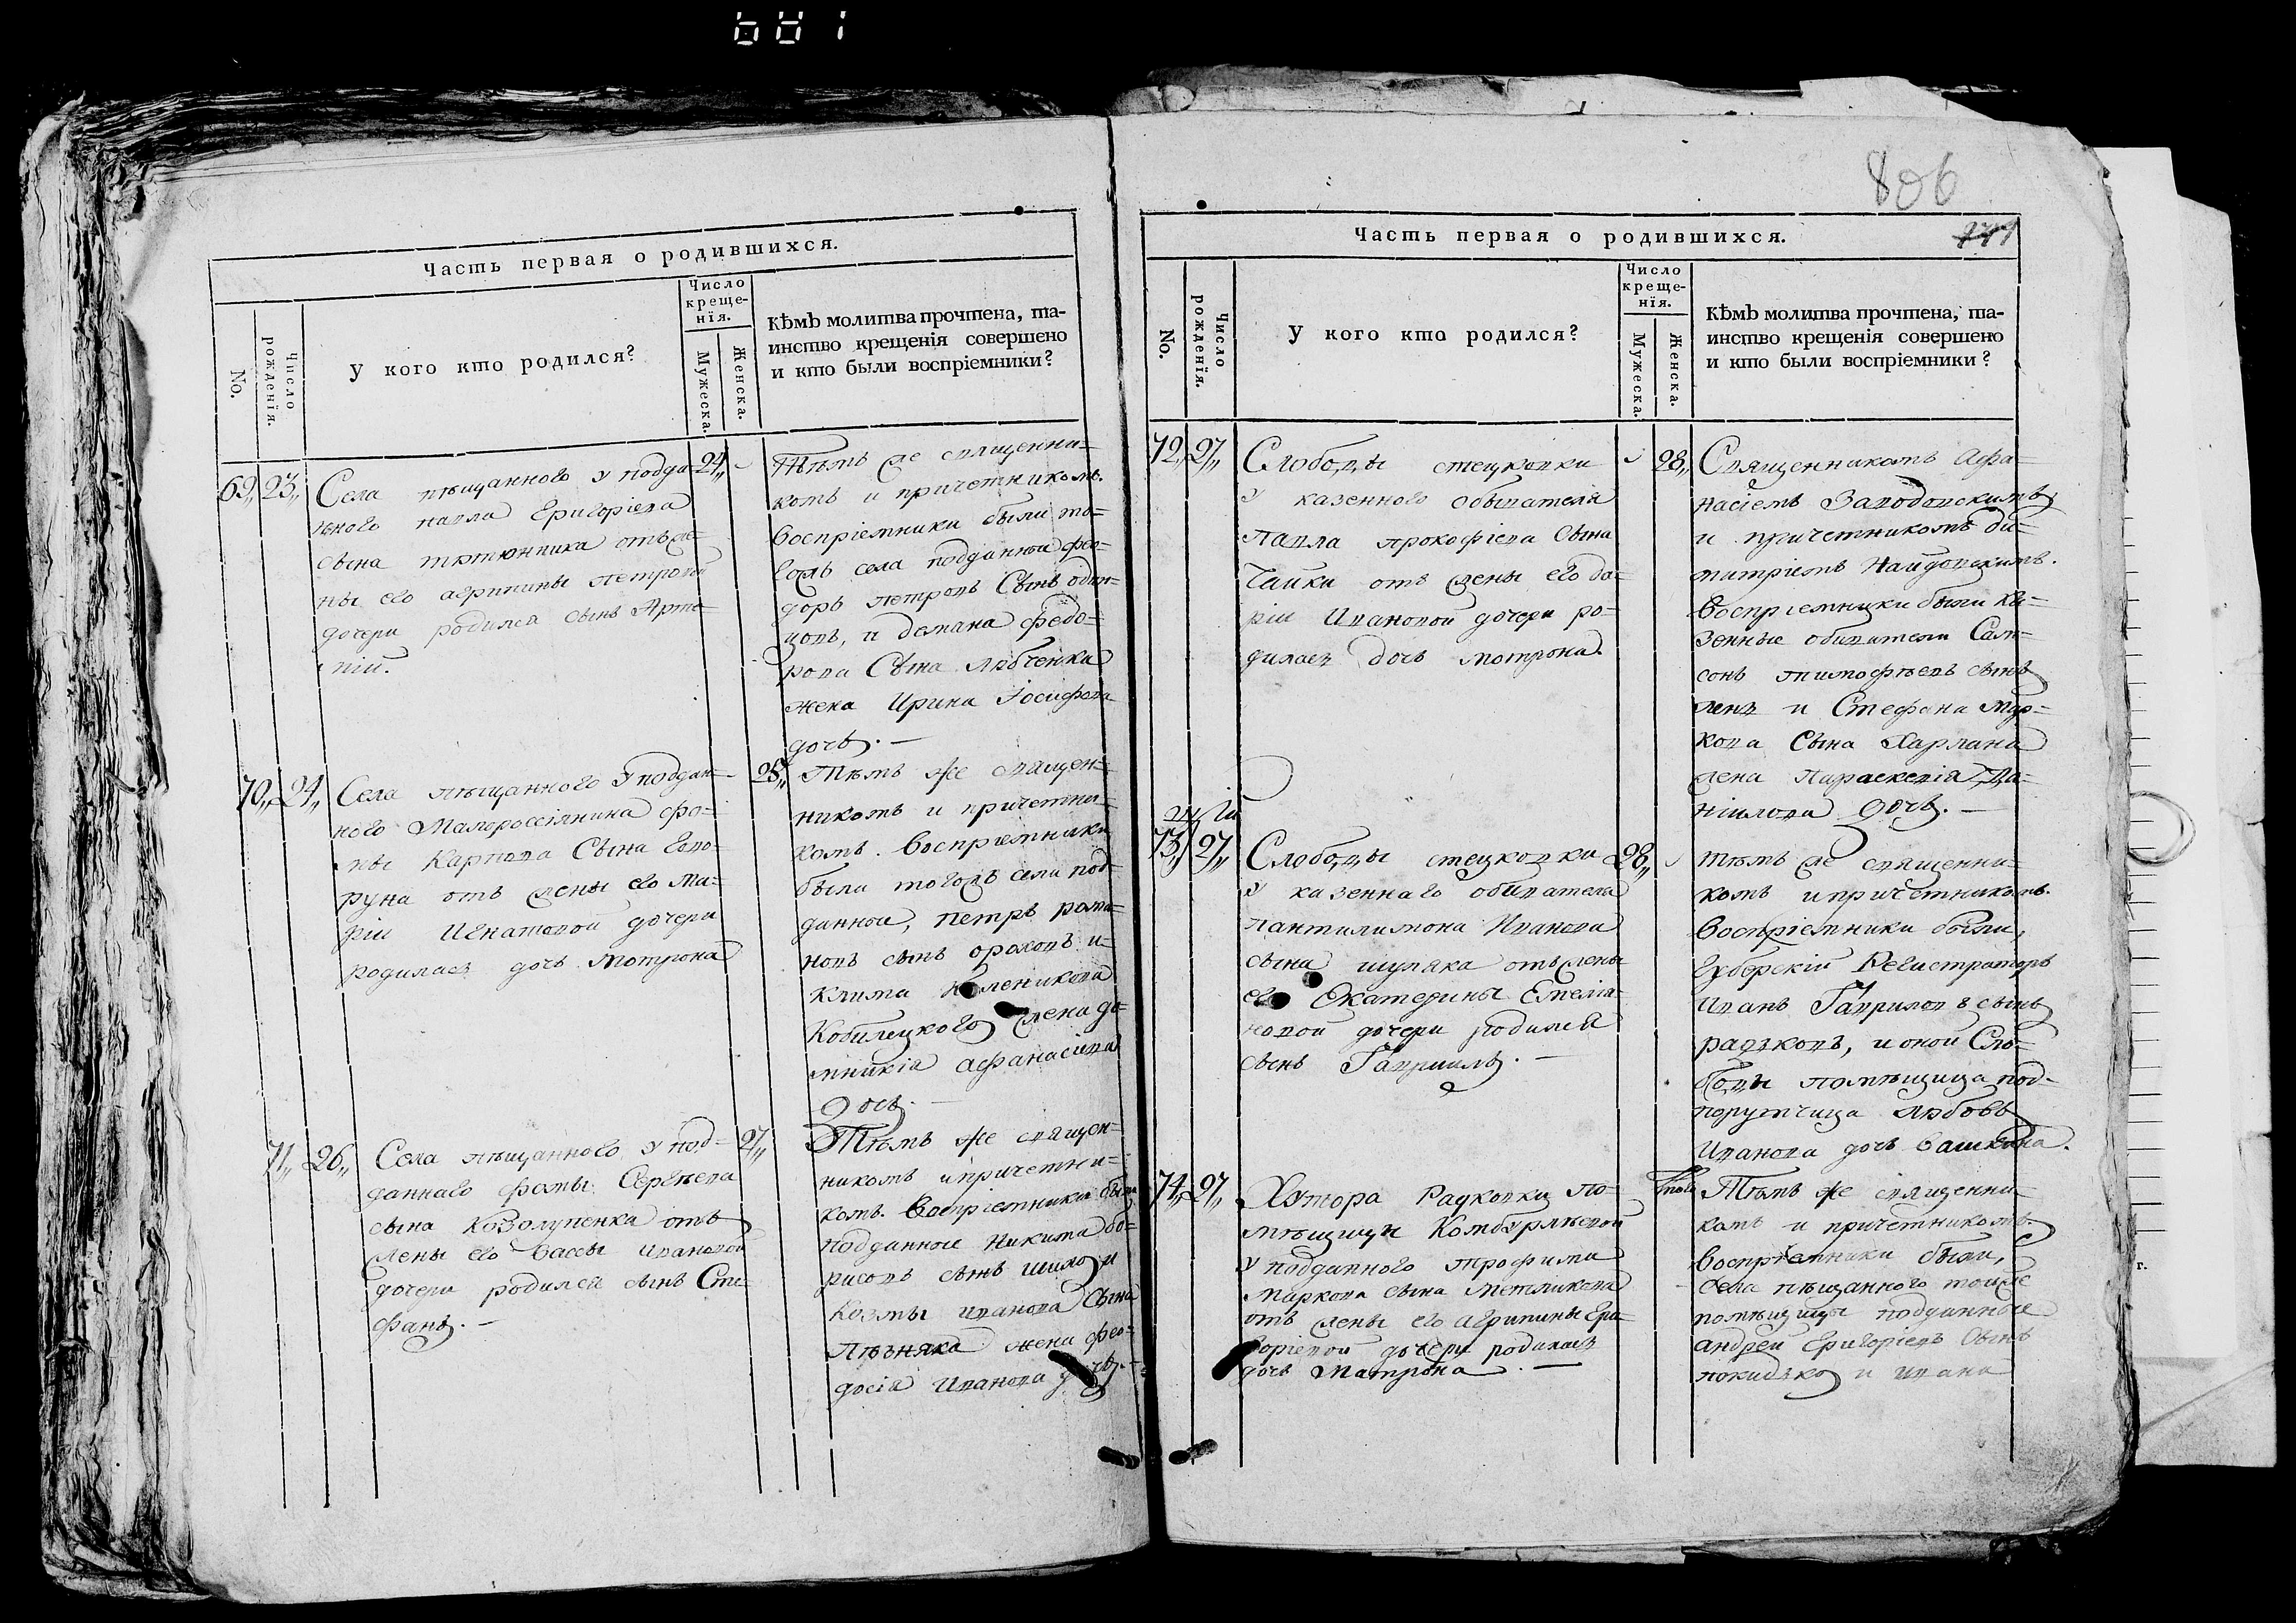 681
Часть первая о родившихся.
No.
Число рожденїя.
У кого кто родился?
Число креще-
нїя.
Мужеска.
Женска.
Кѣмъ молитва прочтена, та-
инство крещенія совершено
и кто были воспріемники?
69,, 23,,
Села пѣщанного у подда-
нного павла Григоріева
сына тютюнника отъ же-
ны его агрипины петровой
дочери родился сынъ Арте-
мій.
24,,
Тѣмъ же священни-
комъ и причетникомъ.
воспріемники были то-
гожъ села подданныи фео-
доръ петровъ Сынъ один-
цовъ, и демяна федо-
рова Сына любченка
жена Ирина Іосифова
дочь.
70,, 24,,
Села пѣщанного У поддан-
ного Малороссіянина фо-
мы Карпова Сына Гово-
руна отъ жены его Ма-
ріи Игнатовой дочери
родилась дочь Мотрона
25,,
Тѣмъ же священ-
никомъ и причетни-
комъ. воспріемники
были тогожъ села под-
данной, петръ рома-
новъ сынъ ороховъ и
Клима
Кобилецкого жена до-
мникіа афанасіева
дочь.
71,, 26,,
Села пѣщанного, у под-
данного фомы Сергѣева
сына Козолупенка отъ
жены его Вассы ивановой
дочери родился сынъ Сте-
фанъ.
27,,
Тѣмъ же священ-
никомъ ипричетни-
комъ. Воспріемники были
подданные Никита бо-
рисовъ сынъ шило, и
Козмы иванова Сына
жена фео-
досіа Иванова дочь.
806
Часть первая о родившихся.
No.
Число рожденїя.
У кого кто родился?
Число
креще-
нїя.
Мужеска.
Женска.
Кѣмъ молитва прочтена, та-
инство крещенія совершено
и кто были воспріемники?
72,, 27,,
Слободы стецковки
у казенного обывателя
павла прокофіева Сына
Чайки отъ жены его да-
ріи Ивановой дочери ро-
дилась дочь мотрона.
28,,
Священникомъ Афа-
насіемъ Заводовскимъ
и причетникомъ ди-
митріемъ Найдовскимъ.
воспріемники были ка-
зенные обиватели Сам-
сонъ тимофѣевъ сынъ
и Стефана мар-
кова Сына Харлана
жена параскевіа да-
ніилова дочь.
73,, 27,,
Слободы стецковки
у казеннаго обивателя
пантилимона Иванова
сына шуляка отъ жены
его Екатерины Емеліа-
новой дочери родился
сынъ Гавріилъ.
28,,
тѣмъ же священни-
комъ ипричетникомъ.
воспріемники были,
Губерскій Регистраторъ
Иванъ Гавриловъ сынъ
радковъ, и оной Сло-
боды помѣщица под-
порутчица любовъ
Иванова дочь
74,, 27,,
Хутора Радковки по-
мѣщицы Комбурлѣевой
у подданного трофима
Маркова сына метликова
отъ жены его агрипины Гри-
горіевой дочери родилась
дочь Матрона.
Тѣмъ же священни-
комъ и причетникомъ
воспріемники были,
Села пѣщанного тойже
помѣщицы подданные
андрей Григоріевъ Сынъ
покидко, и ивана